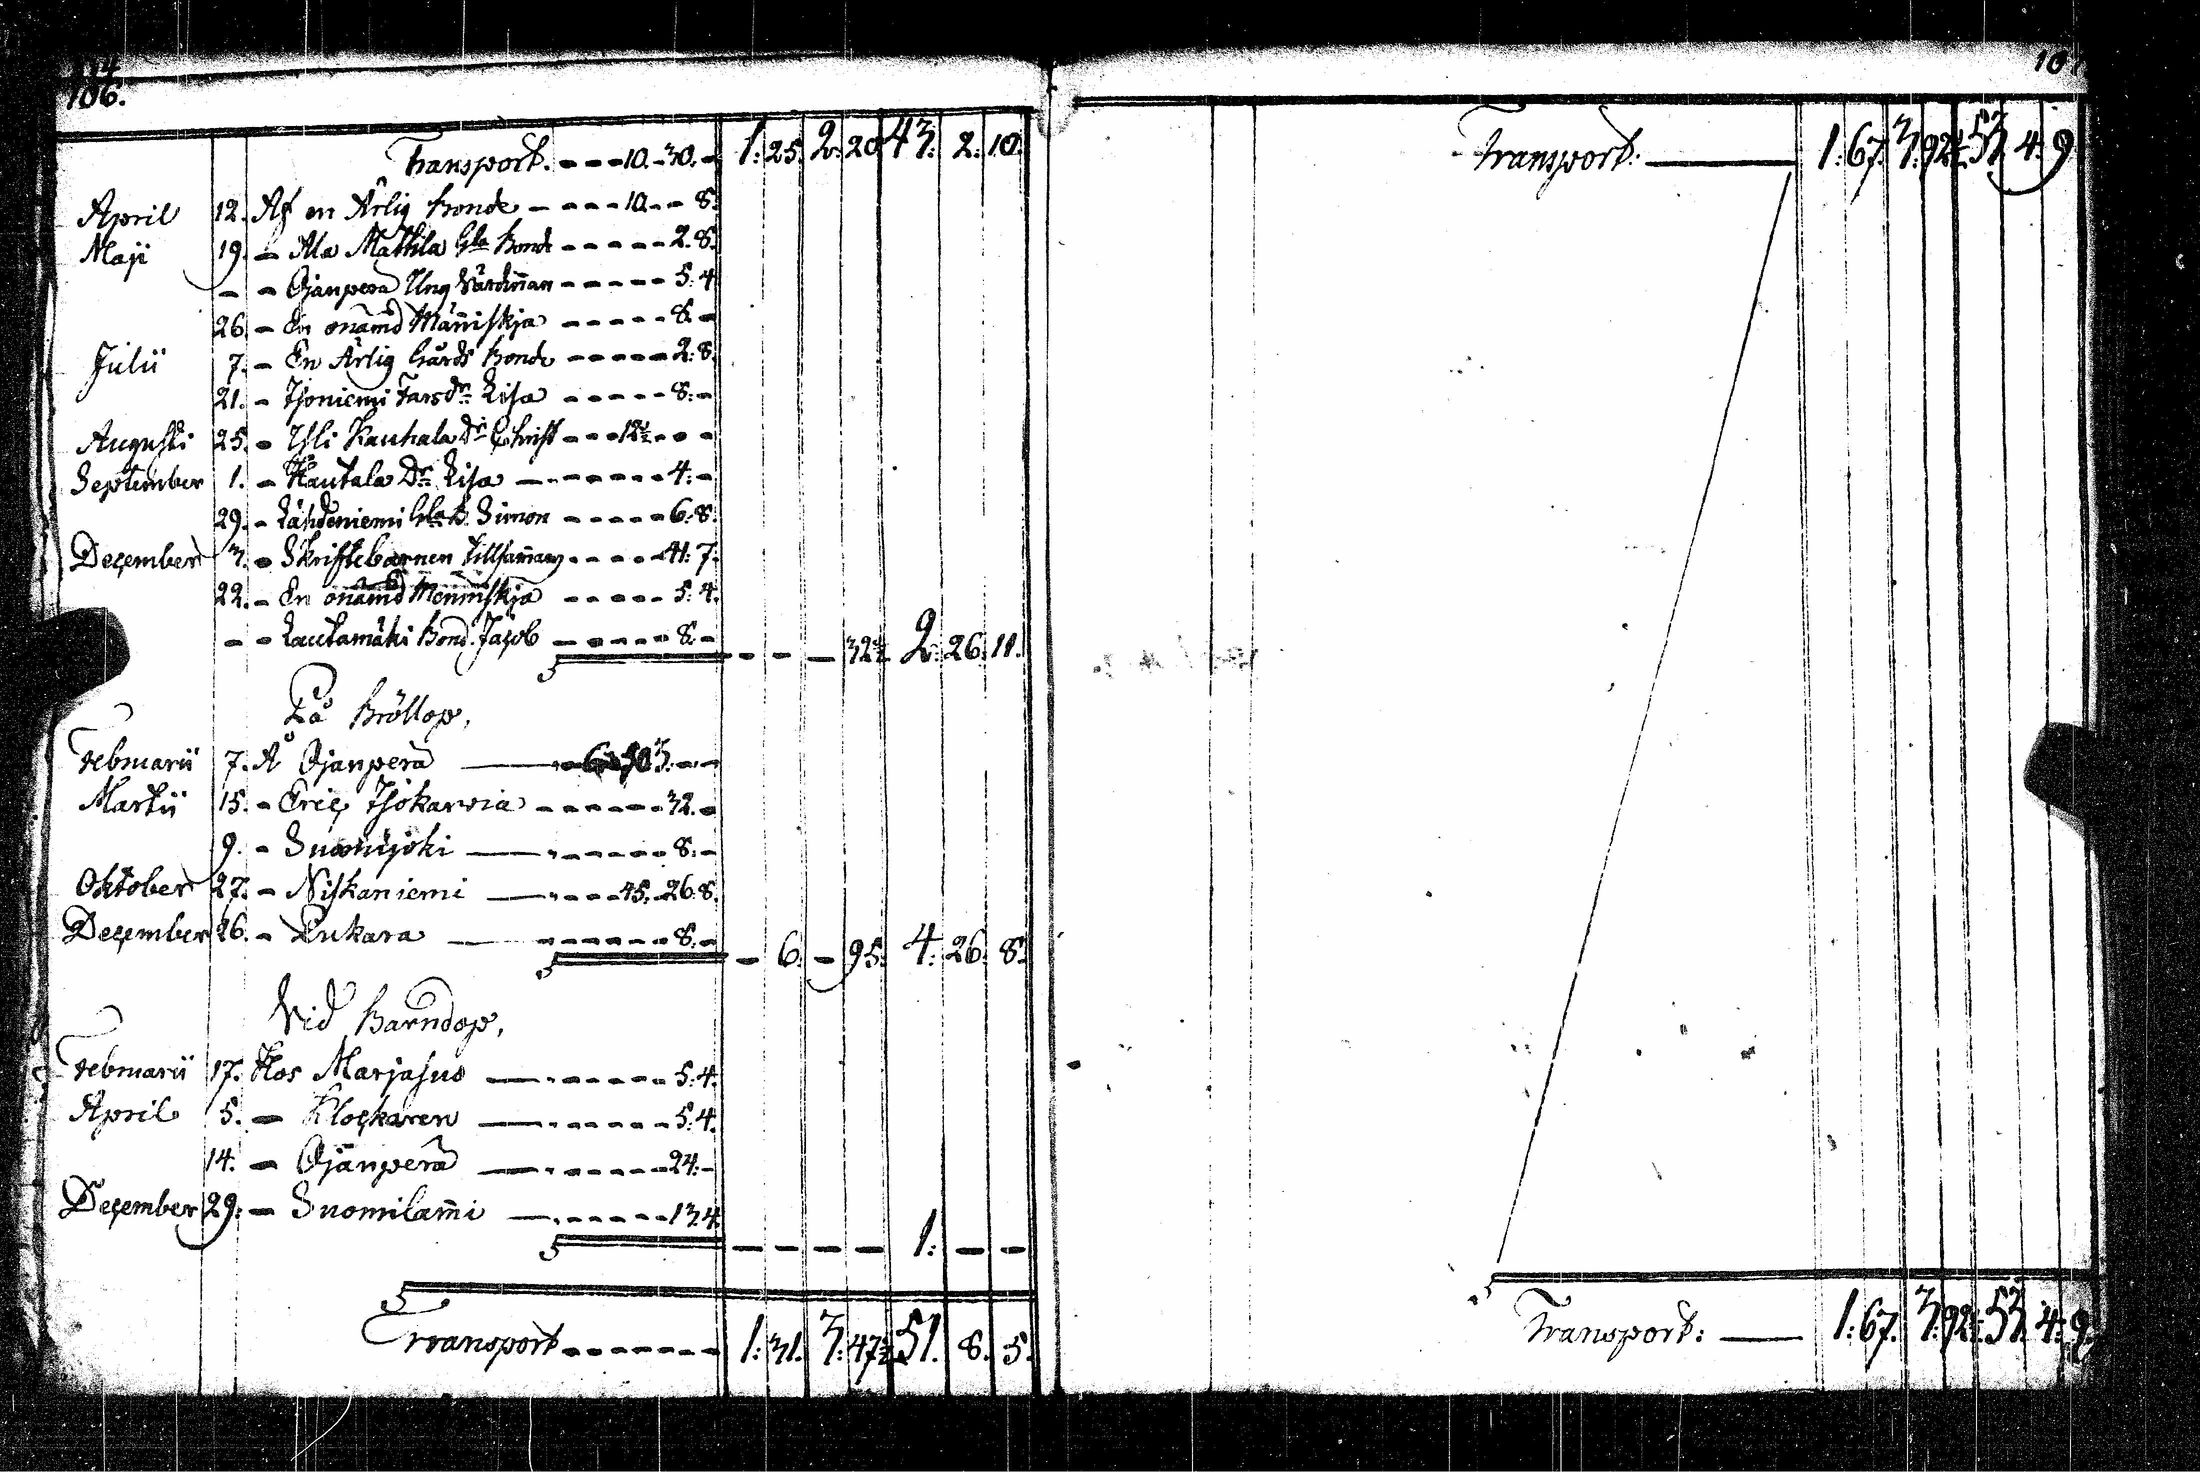 106.
Transport. - - - 10. - 30. - 1: 25. 2: 20 43: 2: 10.
April 12. Af en Ärlig Bonde - - - - 10. - - 8.
Maji 19. - Ala Mattila Gla Bonde - - - - - 2. 8.
- - Ojanperä Ung Värdinnan - - - - - 5: 4
26. - En onämd Människja - - - - - 8. -
Julii 7. - En Ärlig Gårds Bonde - - - - - 2: 8.
21. - Isoniemi Farsdr Lisa - - - - - 8: -
Augusti 25. - Yli Kauhala Dr Christ - - - 12½ - - -
September 1. - Hautala Dr Lisa - - - - - - 4: -
29. - Lähdeniemi Gla B. Simon - - - - - 6: 8.
December 3. - Skriftebarnen tillsammans - - - - - 41: 7.
22. - En onämd Menniskja - - - - - 5: 4.
- - Lautamäki Bond. Jacob - - - - - 8. - - - - 32½ 2: 26. 11.
På Bröllop,
Februarii 7. Å Ojanperä - - 6. 50 3. - -
Martii 15. - Eric Isokarvia - - - - - - 32. -
9. - Suomijoki - - - - - - - 8. -
Oktober 27. - Niskaniemi - - - - 45. - 26. 8.
December 26. - Pukara - - - - - - - 8. - - 6. - 95. 4. 26. 8.
Vid Barndop,
Februarii 17. Hos Marjasuo - - - - - - 5: 4.
April 5. - Klockaren - - - - - - 5: 4.
14. - Ojanperä - - - - - - 24: -
December 29. - Suomilammi - - - - - - 13. 4. - - - - 1: - -
Transport - - - - - - - 1: 31. 3: 47½ 51. 8. 5.
Transport: 1: 67. 3: 92½ 53. 4: 9
Transport: 1: 67. 3: 92½ 53. 4: 9.